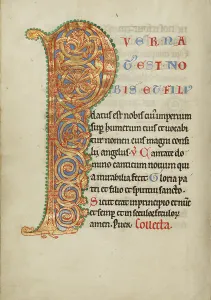 P
VERNA
T' EST NO
BIS ET FILI'
Datus est nobis cui' imperium
sup humerum eius et uocabi
tur nomen eius magni consi
lii angelus. V Cantate do
mino canticum nouum qui
a mirabilia fecit. Gloria pa
tri et filio et spiritui sancto.
Sicut erat in principio et nunc
et semper et in secula seculorum
amen. Puer. Collecta.